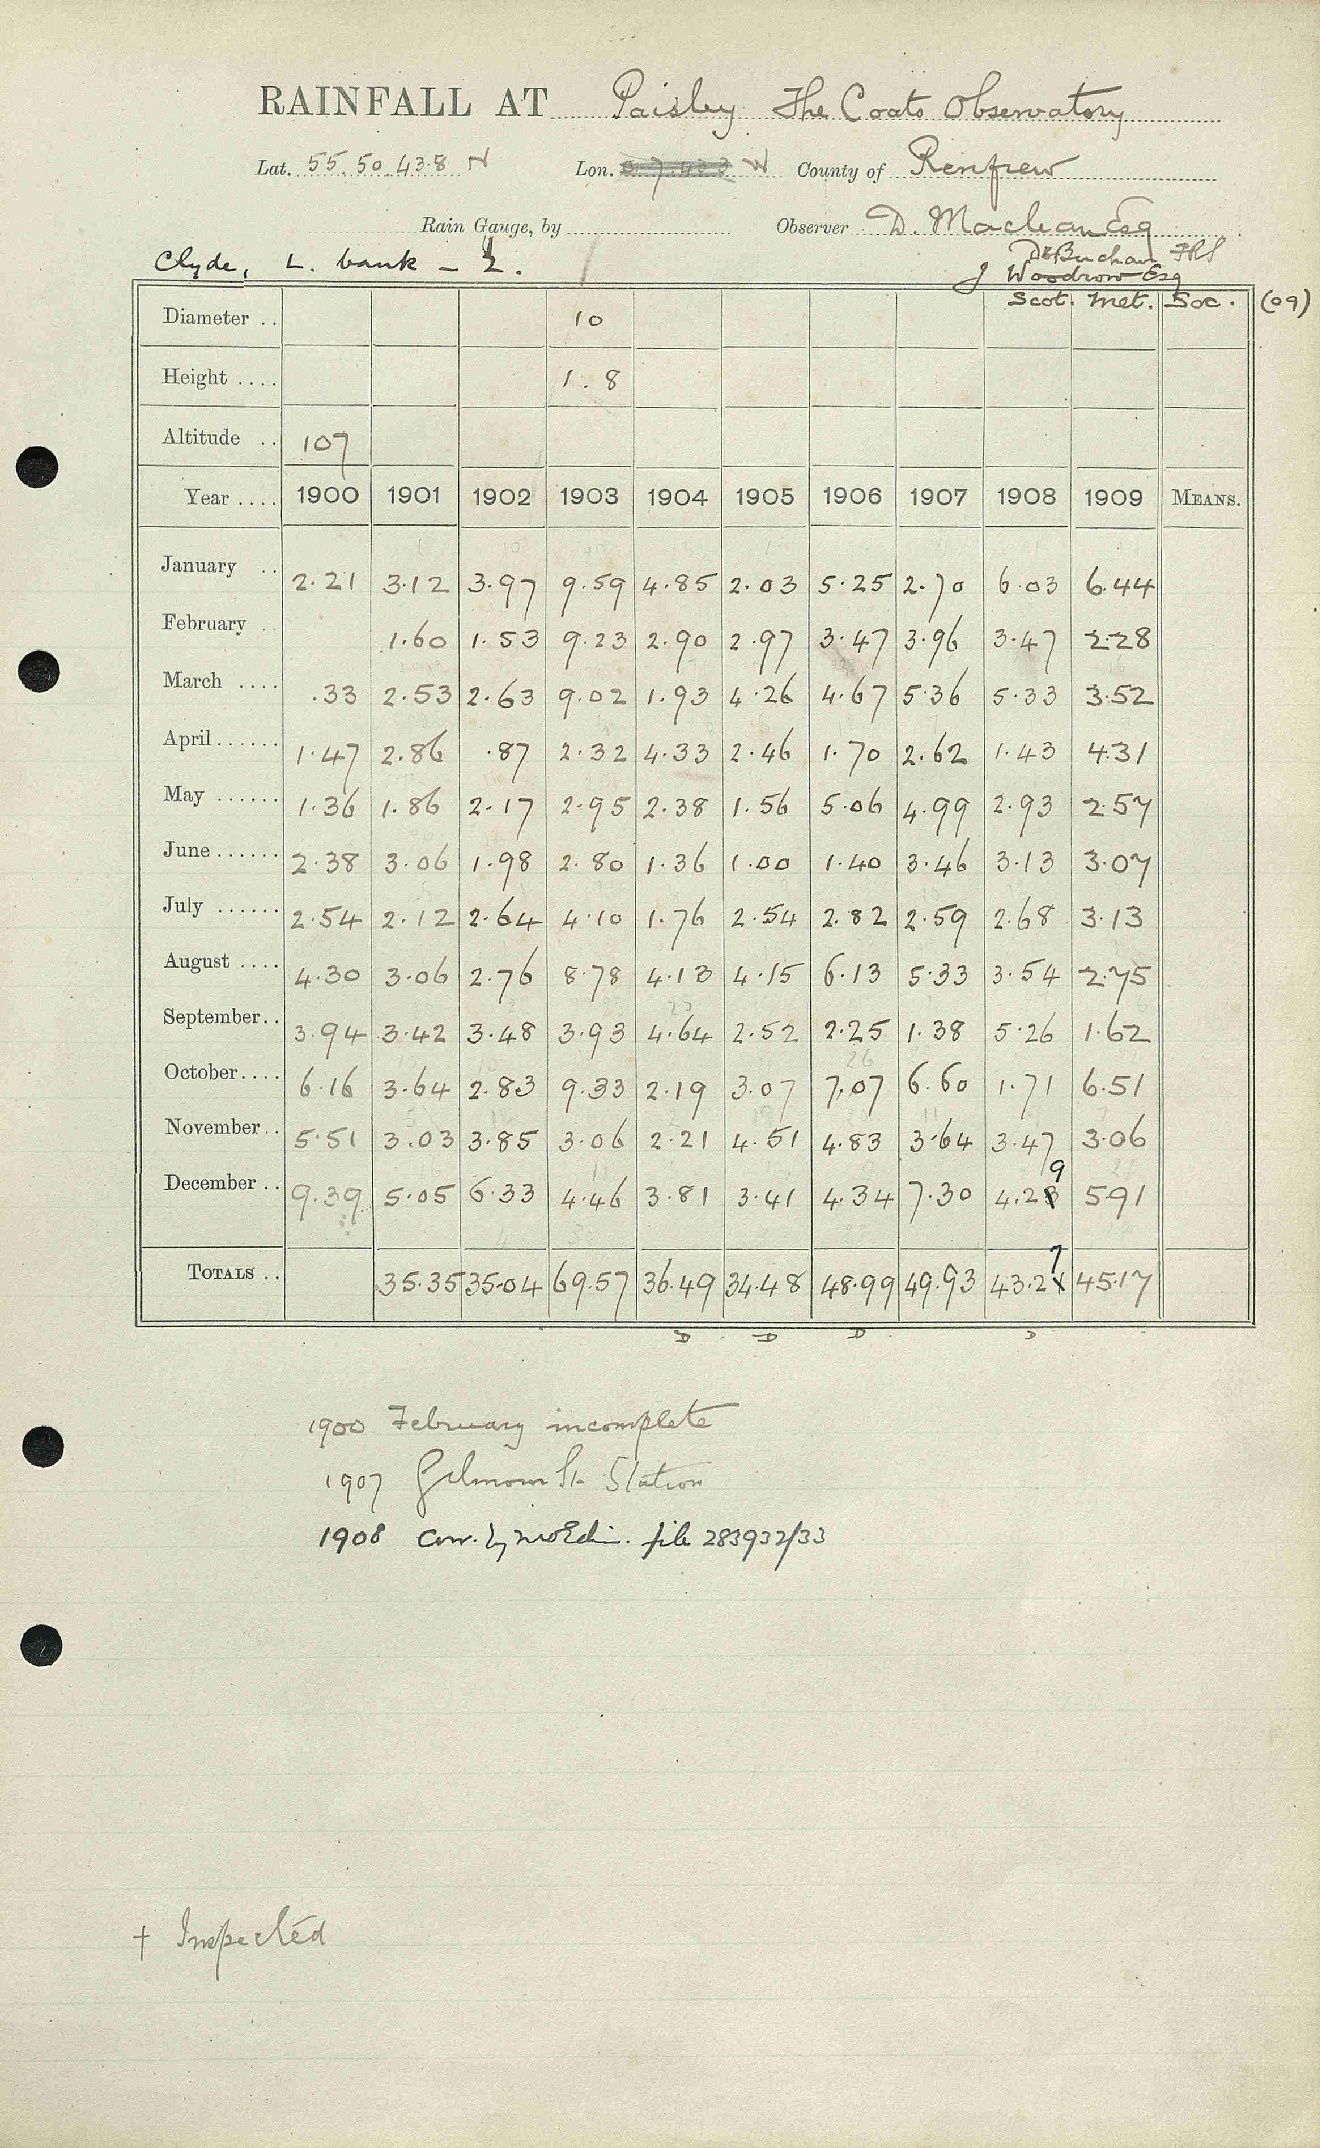 RAINFALL AT Paisley The Coats Observatory
Lat. 55.50.43.8 N Lon. W County of Renfrew
Rain Gauge, by Observer D. Maclean Esq
Clyde, L. bank - 2. Dr Buchan FRS
J Woodrow Esq
Scot. Met. Soc. (09)
Diameter .. 10
Height .... 1.8
Altitude .. 107
Year .... 1900 1901 1902 1903 1904 1905 1906 1907 1908 1909 MEANS.
January .. 2.21 3.12 3.97 9.59 4.85 2.03 5.25 2.70 6.03 6.44
February .. 1.60 1.53 9.23 2.90 2.97 3.47 3.96 3.47 2.28
March .... .33 2.53 2.63 9.02 1.93 4.26 4.67 5.36 5.33 3.52
April ...... 1.47 2.86 .87 2.32 4.33 2.46 1.70 2.62 1.43 4.31
May ...... 1.36 1.86 2.17 2.95 2.38 1.56 5.06 4.99 2.93 2.57
June ...... 2.38 3.06 1.98 2.80 1.36 1.00 1.40 3.46 3.13 3.07
July ...... 2.54 2.12 2.64 4.10 1.76 2.54 2.82 2.59 2.68 3.13
August .... 4.30 3.06 2.76 8.78 4.13 4.15 6.13 5.33 3.54 2.75
September.. 3.94 3.42 3.48 3.93 4.64 2.52 2.25 1.38 5.26 1.62
October.... 6.16 3.64 2.83 9.33 2.19 3.07 7.07 6.60 1.71 6.51
November.. 5.51 3.03 3.85 3.06 2.21 4.51 4.83 3.64 3.47 3.06
9
December .. 9.39 5.05 6.33 4.46 3.81 3.41 4.34 7.30 4.28 5.91
7
TOTALS .. 35.35 35.04 69.57 36.49 34.48 48.99 49.93 43.21 45.17
D D D D
1900 February incomplete
1907 Gilmour St. Station
1908 Corr. by MO Edin. file 283932/33
† Inspected